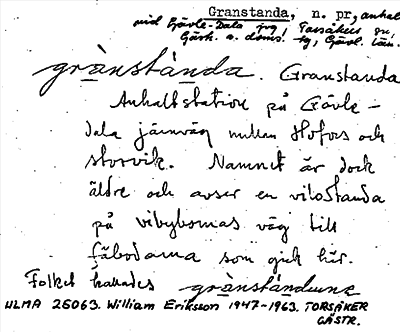 Granstanda, n. pr, anhalt
vid Gävle-Dala jvg! Torsåkers sn,
Gästr. ö. doms. tg, Gävl. län.
grànstànda. Granstanda
Anhaltstation på Gävle-
Dala järnväg mellan Hofors och
Storvik. Namnet är dock
äldre och avser en vilostanda
på vibybornas väg till
fäbodarna som gick här.
Folket kallades grànständunɐ
ULMA 26063. William Eriksson 1947-1963. TORSÅKER
GÄSTR.